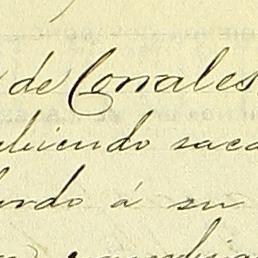 de Corrales
biendo saca
ando á su